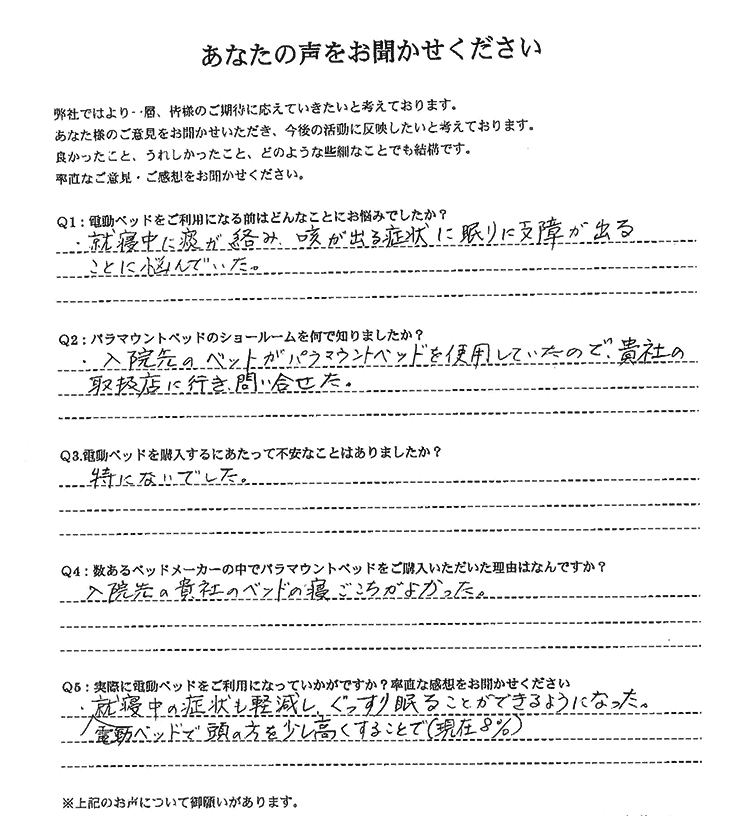 あなたの声をお聞かせください
弊社ではより一層、皆様のご期待に応えていきたいと考えております。
あなた様のご意見をお聞かせいただき、今後の活動に反映したいと考えております。
良かったこと、うれしかったこと、どのような些細なことでも結構です。
率直なご意見・ご感想をお聞かせください。
Q1：電動ベッドをご利用になる前はどんなことにお悩みでしたか？
・就寝中に痰が絡み、咳が出る症状に眠りに支障が出る
ことに悩んでいた。
Q2：パラマウントベッドのショールームを何で知りましたか？
・入院先のベットがパラマウントベッドを使用していたので、貴社の
取扱店に行き、問い合せた。
Q3.電動ベッドを購入するにあたって不安なことはありましたか？
特にないでした。
Q4：数あるベッドメーカーの中でパラマウントベッドをご購入いただいた理由はなんですか？
入院先の貴社のベンドの寝ごこちがよかった。
Q5：実際に電動ベッドをご利用になっていかがですか？率直な感想をお聞かせください
・就寝中の症状も軽減し、ぐっすり眠ることができるようになった。
電動ベッドで頭の方を少し高くすることで(現在8%)
※上記のお声について御願いがあります。